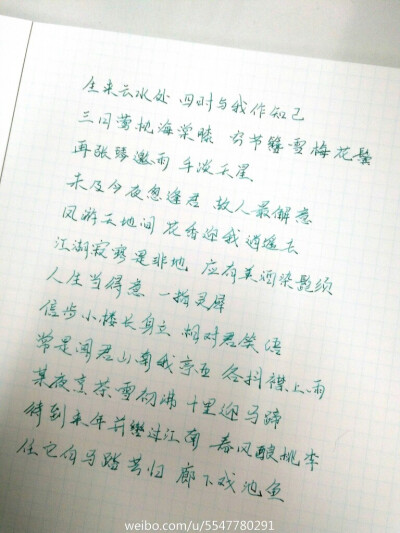 生来云水处 四时与我作知己
三月莺枕海棠睡 穷节簪雪梅花鬓
再张臂邀雨 手泼天星
未及今夜忽逢君 故人最解意
风游天地间 花香迎我逍遥去
江湖寂寥是非地 应有美酒染髭须
人生当得意 一指灵犀
信步小楼长身立 相对君笑语
常是闻君山南我亭西 各抖襟上雨
某夜烹茶雪初沸 十里迎马蹄
待到来年并辔过江南 春风酿桃李
任它白马踏芳归 廊下戏池鱼
weibo.com/u/5547780291